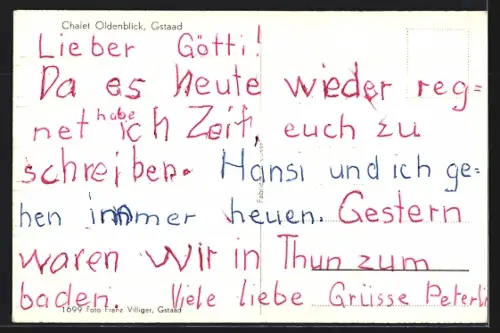 Chalet Oldenblick, Gstaad
Lieber Götti!
Da es heute wieder reg=
net habe ich Zeit, euch zu
schreiben. Hansi und ich ge=
hen immer heuen. Gestern
waren wir in Thun zum
baden. Viele liebe Grüsse Peterli
1699 Foto Franz Villiger, Gstaad